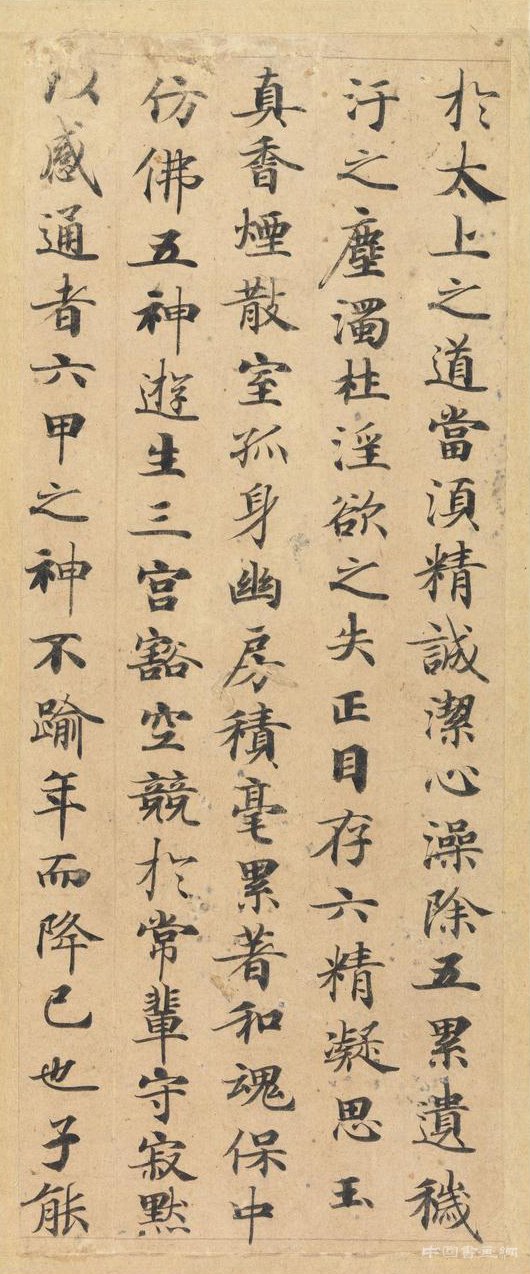 於太上之道當湏精誠潔心澡除五累遺穢
汙之塵濁杜淫欲之失正目存六精凝思玉
真香煙散室孤身幽房積毫累著和魂保中
仿佛五神遊生三宮豁空競於常輩守寂默
以感通者六甲之神不踰年而降已也子能
中国書画網